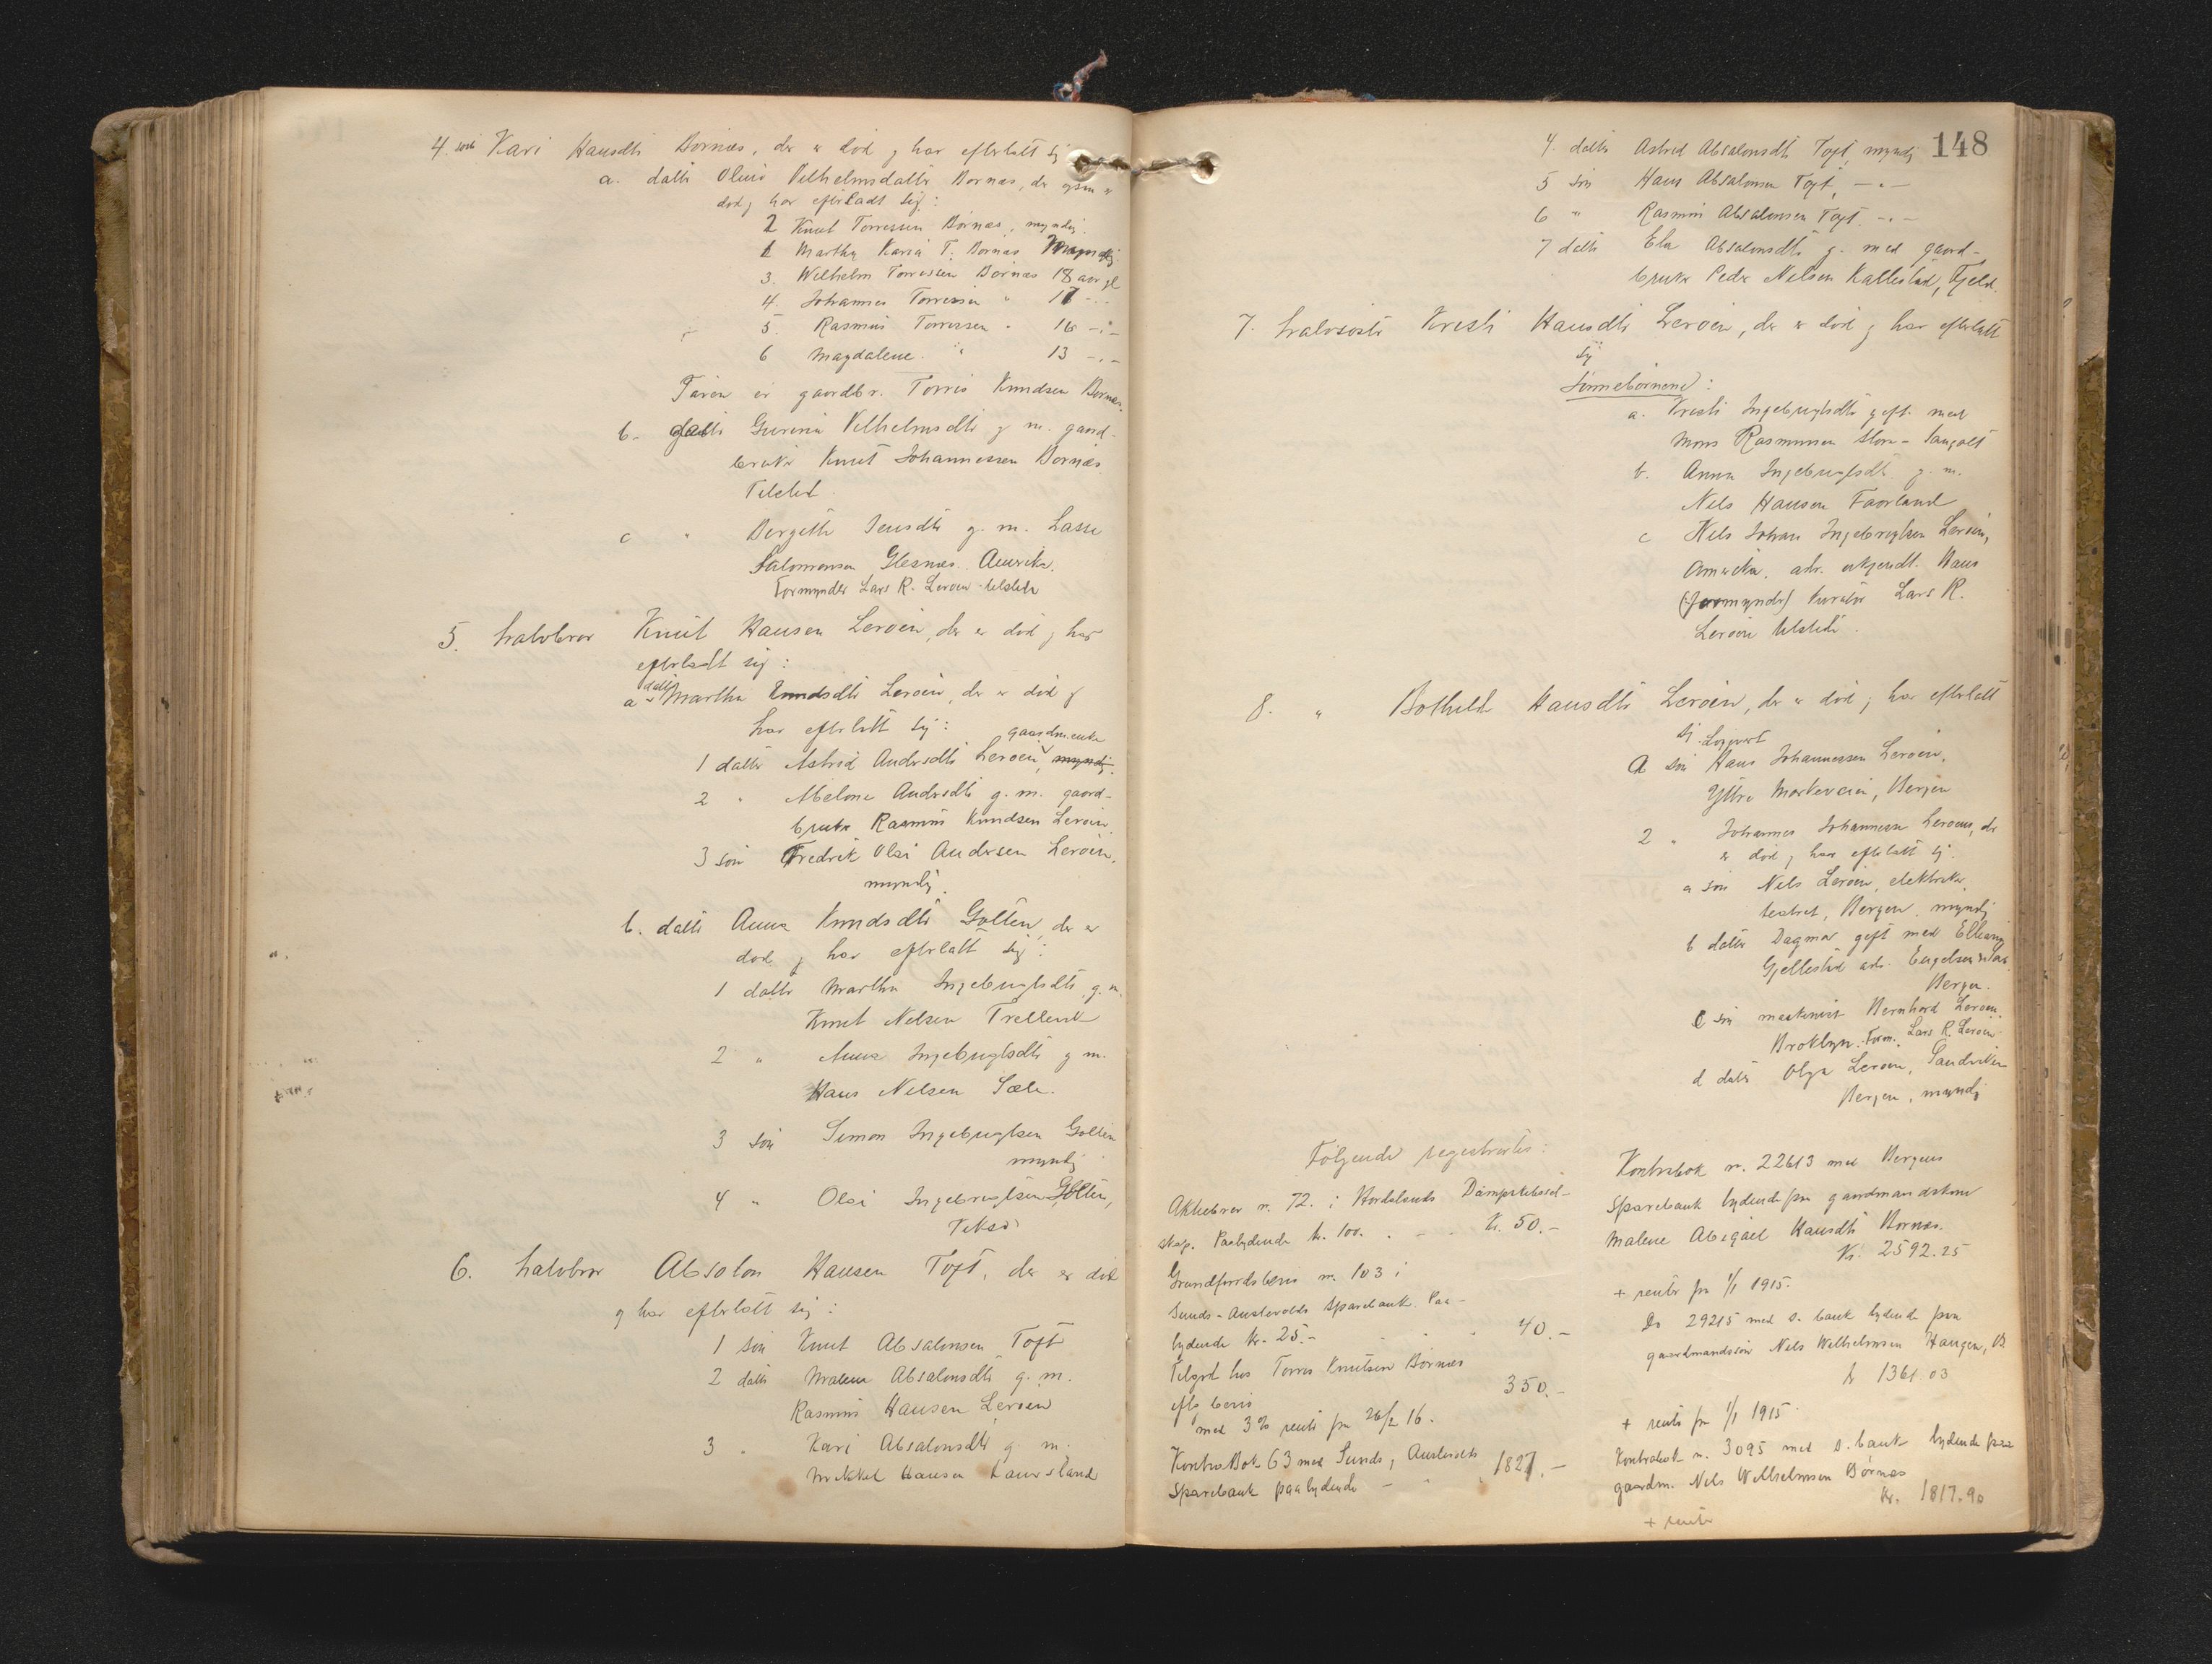 4. søst Kari Hansdtr Børnæs, der er død og har efterlatt sig
a. datter Oline Vilhelmsdatter Børnæs, der ogsaa er
død og har efterladt sig:
2 Knut Torressen Børnæs, myndig.
1 Martha Karia T. Børnæs Myndig
3. Wilhelm Torressen Børnæs 18 aar gl
4. Johannes Torressen " 17 -"-
5. Rasmus Torressen " 16 -"-
6 Magdalene " 13 -"-
Faren er gaardbr. Torris Knudsen Børnæs.
b. datter Gurina Vilhelmsdtr g. m. gaard-
bruker Knut Johannessen Børnæs
Tilsted.
c " Bergitte Jensdtr g. m. Lasse
Salomonsen Glesnæs. Amerika.
Formynder Lars R. Lerøen tilstede
5. halvbror Knut Hansen Lerøen, der er død og har
efterladt sig:
a datter Martha Knudsdtr Lerøen, der er død og
har efterlatt sig:
gaardm.enke
1 datter Astrid Andersdtr Lerøen, myndig.
2 " Abelone Andersdtr g. m. gaard-
bruker Rasmus Knudsen Lerøen
3 søn Fredrik Olai Andersen Lerøen,
myndig.
b. datter Anna Knudsdtr Golten, der er
død og har efterlatt sig:
1 datter Martha Ingebrigtsdtr g. m.
Knut Nelsen Trellevik
2 " Anna Ingebrigtsdtr g. m.
Hans Nelsen Sæle.
3 søn Simon Ingebrigtsen Golten
myndig
4 " Olai Ingebrigtsen Golten,
Veksø
6. halvbror Absolon Hansen Toft, der er død
og har efterlatt sig:
1 søn Knut Absalonsen Toft
2 datter Malene Absalonsdtr g. m.
Rasmus Hansen Lerøen
3 " Kari Absalonsdtr g. m.
Mikkel Hansen Kaursland
148
4. datter Astrid Absalonsdtr Toft, myndig
5 søn Hans Absalonsen Toft, -"-
6 " Rasmus Absalonsen Toft -"-
7 datter Ela Absalonsdtr g. med gaard-
bruker Peder Nelsen Kallestad, Fjeld.
7. halvsøster Kristi Hansdtr Lerøen, der er død og har efterlatt
sig
Sønnebørnene:
a. Kristi Ingebrigtsdtr gift med
Mons Rasmussen Store-Sangolt
b. Anna Ingebrigtsdtr g. m.
Nils Hansen Faarland
c Nils Johan Ingebrigtsen Lerøen,
Amerika, adr. ukjendt. Hans
(formynder) kurator Lars R.
Lerøen tilstede.
8. " Bothilde Hansdtr Lerøen, der er død og har efterlatt
sig
a søn Hans Johannessen Lerøen,
Ytre Markeveien, Bergen
2 " Johannes Johannessen Lerøen, der
er død og har efterlatt sig.
a søn Nils Lerøen, elektriker,
teatret, Bergen, myndig
b datter Dagmar gift med Elling
Gjellestad adr. Engelsen
Bergen.
c søn maskinist Bernhard Lerøen
Broklyn. Form. Lars R. Lerøen
d datter Olga Lerøen, Sandviken
Bergen, myndig
Følgende registrertes:
Aktiebrev nr. 72. i Hordalands Dampskibssel-
skap. Paalydende kr. 100. . - - Kr. 50.-
Grundfondsbevis nr. 103 i
Sunds-Austevolds sparebank. Paa-
lydende kr. 25.- - - - 40.-
Tilgod hos Torres Knutsen Børnæs
350.-
eftr bevis
med 3% rente fra 26/2 16.
Kontra Bok 63 med Sunds og Austevolds
Sparebank paalydende - - - 1827.-
Kontrabok nr. 22613 med Bergens
Sparebank lydende paa gaardmandskone
Malene Abigael Hansdtr Børnæs.
Kr. 2592.25
+ renter fra 1/1 1915.
Do 29215 med s. bank lydende paa
gaardmandssøn Nils Wilhelmsen Haugen, B
kr 1361.03
+ rente fra 1/1 1915.
Kontrabok nr. 3095 med s. bank lydende paa
gaardm. Nils Wilhelmsen Børnæs
Kr. 1817.90
+ renter